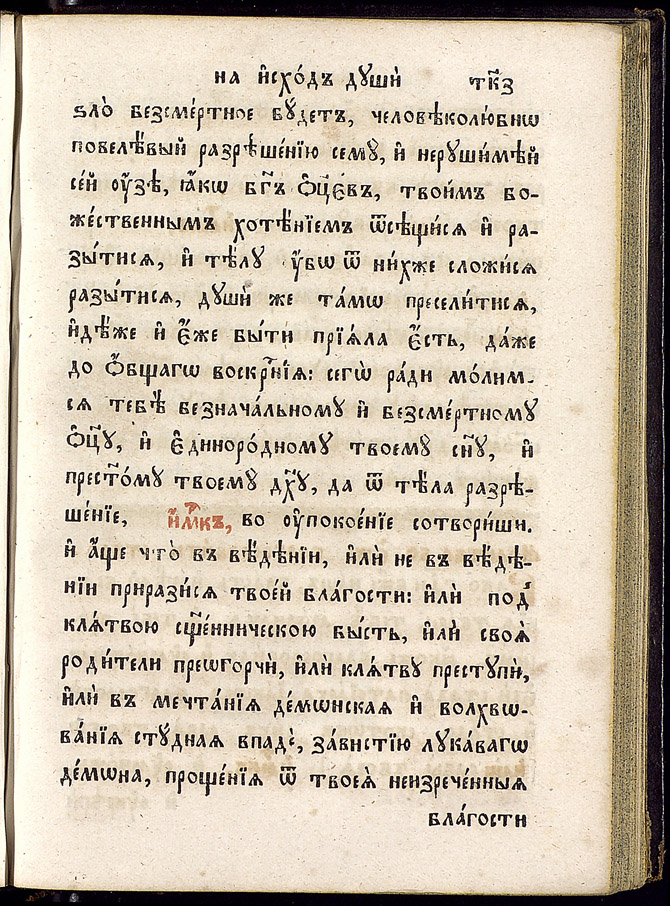 на и҆схо́дъ дꙋшѝ тк҃з
ѕло̀ безсме́ртное бꙋ́детъ, человѣколю́бнѡ
повелѣ́вый разрѣше́нїю семꙋ̀, и҆ нерꙋши́мѣй
се́й ᲂу҆́зѣ, ꙗ҆́кѡ бг҃ъ ѻ҆ц҃є́въ, твои́мъ бо-
же́ственнымъ хотѣ́нїемъ ѿсѣщи́сѧ и҆ ра-
зы́тисѧ, и҆ тѣ́лꙋ ᲂу҆́бѡ ѿ ни́хже сложи́сѧ
разы́тисѧ, дꙋшѝ же та́мѡ пресели́тисѧ,
и҆дѣ́же и҆ є҆́же бы́ти прїѧ́ла є҆́сть, да́же
до ѻ҆́бщагѡ воскр҃нїѧ: сегѡ̀ ра́ди мо́лим-
сѧ тебѣ̀ безнача́льномꙋ и҆ безсме́ртномꙋ
ѻ҆ц҃ꙋ̀, и҆ є҆диноро́дномꙋ твоемꙋ̀ сн҃ꙋ, и҆
прест҃о́мꙋ твоемꙋ̀ дх҃ꙋ, да ѿ тѣ́ла разрѣ-
ше́нїе, и҆м҃къ, во ᲂу҆покое́нїе сотвори́ши.
и҆ а҆́ще что̀ въ вѣ́дѣнїи, и҆лѝ не въ вѣ́дѣ-
нїи приразѝсѧ твое́й бла́гости: и҆лѝ под̾
клѧ́твою сщ҃е́нническою бы́сть, и҆лѝ своѧ̑
роди́тели преѡгорчѝ, и҆лѝ клѧ́твꙋ престꙋпѝ,
и҆лѝ въ мечта́нїѧ де́мѡнскаѧ и҆ волхвѡ-
ва́нїѧ стꙋ́днаѧ впадѐ, за́вистїю лꙋка́вагѡ
де́мѡна, проще́нїѧ ѿ твоеѧ̀ неизрече́нныѧ
бла́гости